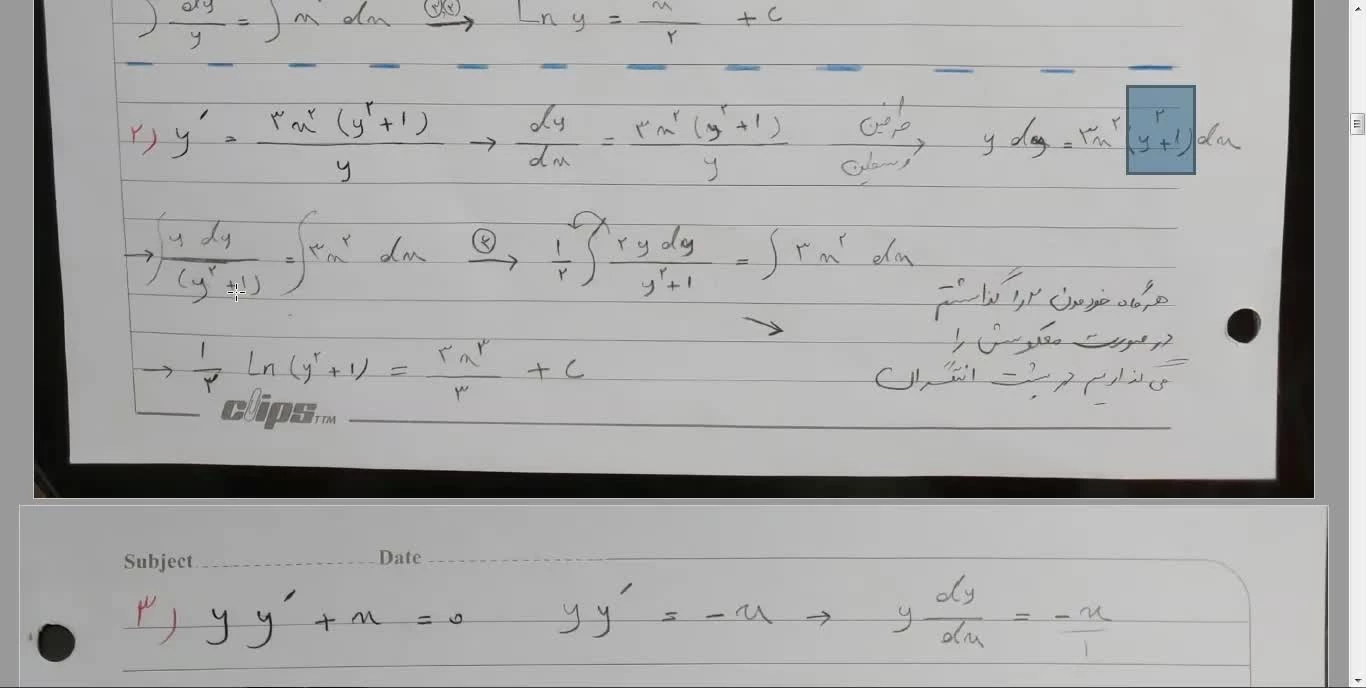 ∫ dy/y = ∫ x dx → Ln y = x/۲ + c
۲) y′ = ۳x^۲ (y^۲+۱) / y → dy/dx = ۳x^۲ (y^۲+۱) / y طرفین وسطین → y dy = ۳x^۲ (y^۲+۱) dx
→ ∫ y dy / (y^۲+۱) = ∫ ۳x^۲ dx → ۱/۲ ∫ ۲y dy / y^۲+۱ = ∫ ۳x^۲ dx
هرگاه خودمون ۲ را گذاشتیم
در صورت معکوسش را
می گذاریم در پشت انتگرال
→ ۱/۳ Ln (y^۲+۱) = ۳x^۳/۳ + c
clips TTM
Subject Date
۳) y y′ + x = ۰ y y′ = -x → y dy/dx = -x/۱